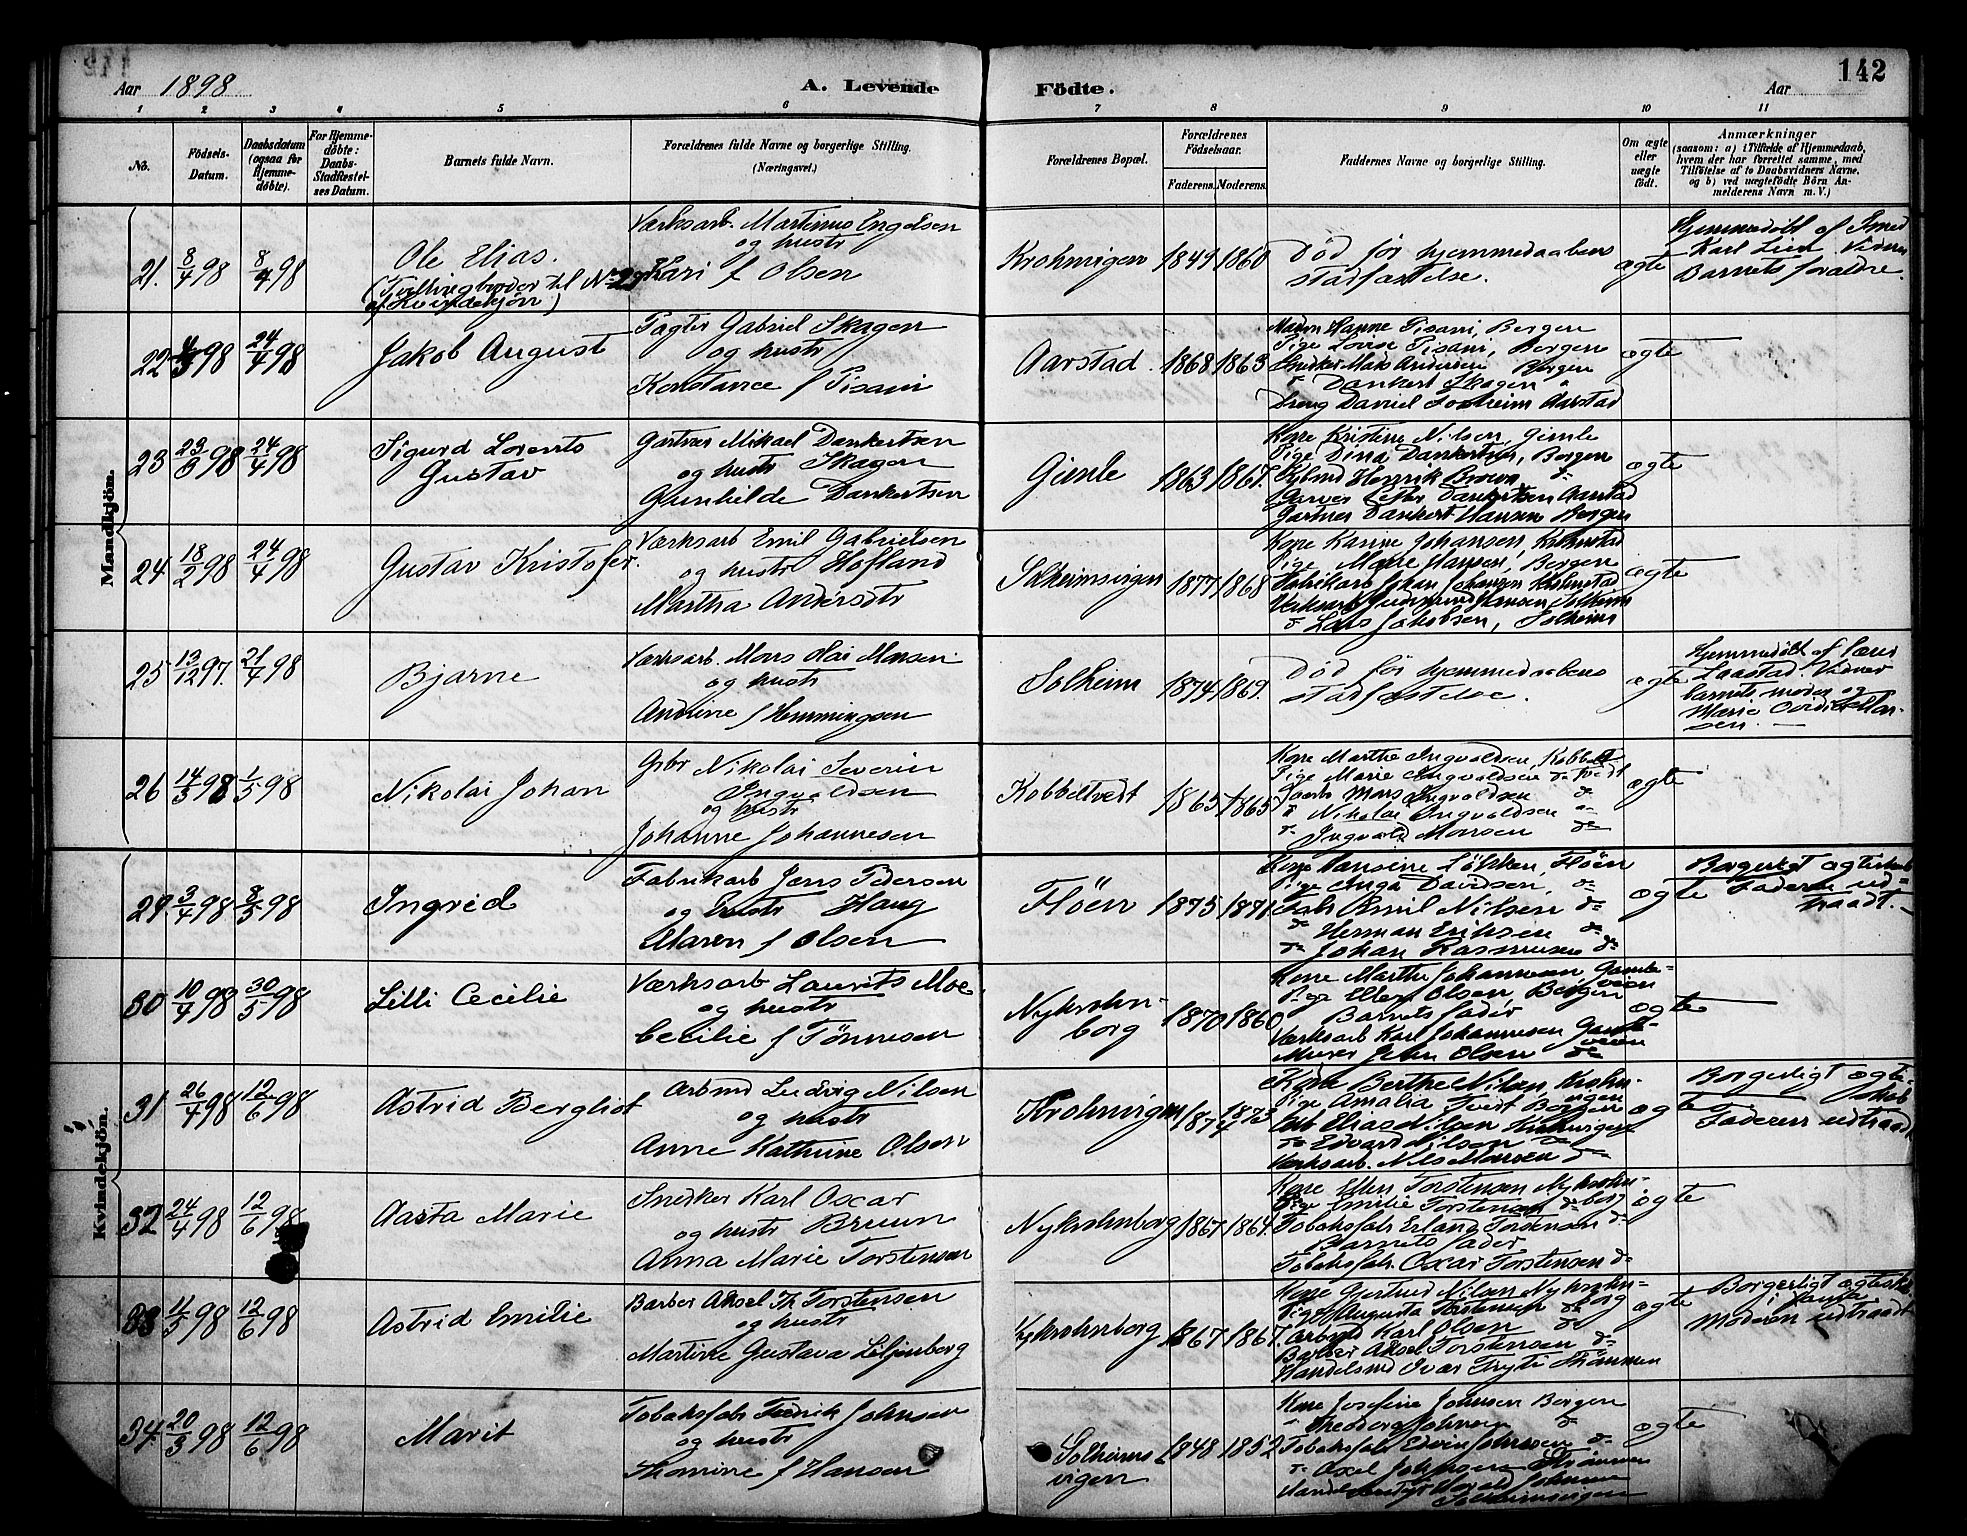 142
Aar 1898
A. Levende
Födte.
Aar
1 2 3 4 5 6 7 8 9 10 11
No.
Födsels-Datum.
Daabsdatum (ogsaa for Hjemme-döbte).
For Hjemme-döbte: Daabs-Stadfæstel-ses Datum.
Barnets fulde Navn.
Forældrenes fulde Navne og borgerlige Stilling.
(Næringsvei.)
Forældrenes Bopæl.
Forældrenes Födselsaar.
Faderens. Moderens.
Faddernes Navne og borgerlige Stilling.
Om ægte eller uægte födt.
Anmærkninger
(saasom: a) i Tilfælde af Hjemmedaab, hvem der har forrettet samme, med Tilföielse af to Daabsvidners Navne, og b) ved uægtefödte Börn An-melderens Navn m. V.)
Mandkjön.
21. 8/4 98 8/4 98
Ole Elias.
(Tvillingbroder til No 29
af Kvindekjøn)
Værksarb. Martinus Engelsen
og hustr
Kari f Olsen
Krohnvigen 1849 1860
Død før hjemmedaabens
stadfæstelse.
ægte
Hjemmedøbt af Smed
Karl Lien. Vidner
Barnets forældre.
22 98 24/4 98
Jakob August
Gabriel Skagen
og hustr
Konstance f Pisani
Aarstad. 1868 1863
Hanne Pisani, Bergen
Pige Lovise Pisani, Bergen
Snedker Mads Andersen Bergen
Dankert Skagen
Dreng Daniel Forheim Aarstad
ægte
23 23/3 98 24/4 98
Sigurd Lorents
Gustav
Gartner Mikael Dankertsen
og hustr Skagen
Gunhilde Dankertsen
Gimle 1863 1867.
Kone Kristine Nilsen, Gimle
Pige Dina Dankertsen, Bergen
Henrik Brown do
Garver Peter Dankertsen Aarstad
Gartner Dankert Hansen Bergen
ægte
24 18/2 98 24/4 98
Gustav Kristofer.
Værksarb Emil Gabrielsen
og hustr Hofland
Martha Andersdtr
Solheimsvigen 1877 1868
Kone Johansen,
Pige Marie Hansen, Bergen
Fabrikarb Johan Johansen
Værksarb Gudmund Hansen Solheim
do Lars Jakobsen, Solheim
ægte
25 13/12 97. 21/4 98
Bjarne
Værksarb. Mons Olai Monsen.
og hustr
Andrine f Hemmingsen
Solheim 1874 1869.
Død før hjemmedaabens
stadfæstelse.
ægte
Hjemmedøbt af
Laastad. Vidner
barnets moder og
Marie
26 14/3 98 1/5 98
Nikolai Johan
Gbr Nikolai Severin
Ingvaldsen
og hustr
Johanne Johannesen
Kobbeltvedt 1865 1865
Kone Marthe Ingvaldsen, Kobbelt-
Pige Marie Ingvaldsen do tvedt
Mons Ingvaldsen do
Nikolai Ingvaldsen
do Ingvald Monsen do
ægte
Kvindekjön.
29 3/4 98 8/5 98
Ingrid
Fabrikarb Jens Pedersen
og hustr Haug
Maren f Olsen
Fløen 1875 1871.
Kone Hansine Løfsten, Fløen
Pige Inga Davidsen, do
Fab Emil Nilsen do
do Herman Eriksen do
do Johan Rasmussen do
ægte
Borgerligt ægteskab
Faderen ud-
traadt.
30 10/4 98 30/5 98
Lilli Cecilie
Værksarb Laurits Moe.
og hustr
Cecilie f Tønnesen
Nykrohn-
borg 1870 1860
Kone Marthe Johannesen Gamle-
Pige Ellen Olsen, Bergen veien
Barnets fader
Værksarb Karl Johannesen Gamle-
Murer John Olsen do veien
ægte
31 26/4 98 12/6 98
Astrid Bergliot
Arbmd Ludvig Nilsen
og hustr
Anne Kathrine Olsen
Krohnvigen 1874 1873
Kone Berthe Nilsen, Krohn-
Pige Amalia Tvedt Bergen vigen
Arb Elias Nilsen Krohnvigen
do Edvard Nilsen do
Værksarb. Nils Monsen do
ægte
Borgerligt ægte-
skab
Faderen udtraadt
32 24/4 98 12/6 98
Aasta Marie
Snedker Karl Oscar
og hustr Bruun
Anna Marie Torstensen
Nykrohnborg 1867 1864.
Kone Ellen Torstensen Nykrohn-
Pige Emilie Torstensen do borg
Tobaksfab Erland Torstensen do
Barnets fader
Tobaksfab. Oscar Torstensen do
ægte
33 98 12/6 98
Astrid Emilie
Barber Aksel Th Torstensen
og hustr
Martine Gustava Liljenberg
Nykrohnborg 1867 1867.
Kone Gjertrud Nilsen Nykrohn-
Pige Augusta Torstensen do borg
Arbmd Karl Olsen do
Barber Aksel Torstensen do
Handelsmd Ivar Fryti Strømmen
ægte
Borgerligt ægtesk.
Moderen udtraadt
34. 20/3 98 12/6 98
Marit
Tobaksfab Fredrik Johnsen
og hustr
Thomine f Hansen
Solheims
vigen 1848 1852
Kone Josefine Johnsen Bergen
Johnsen do
Tobaksfab Edvin Johnsen do
do Axel Johnsen Strømmen
Harald Johnsen
Solheimsvigen
ægte